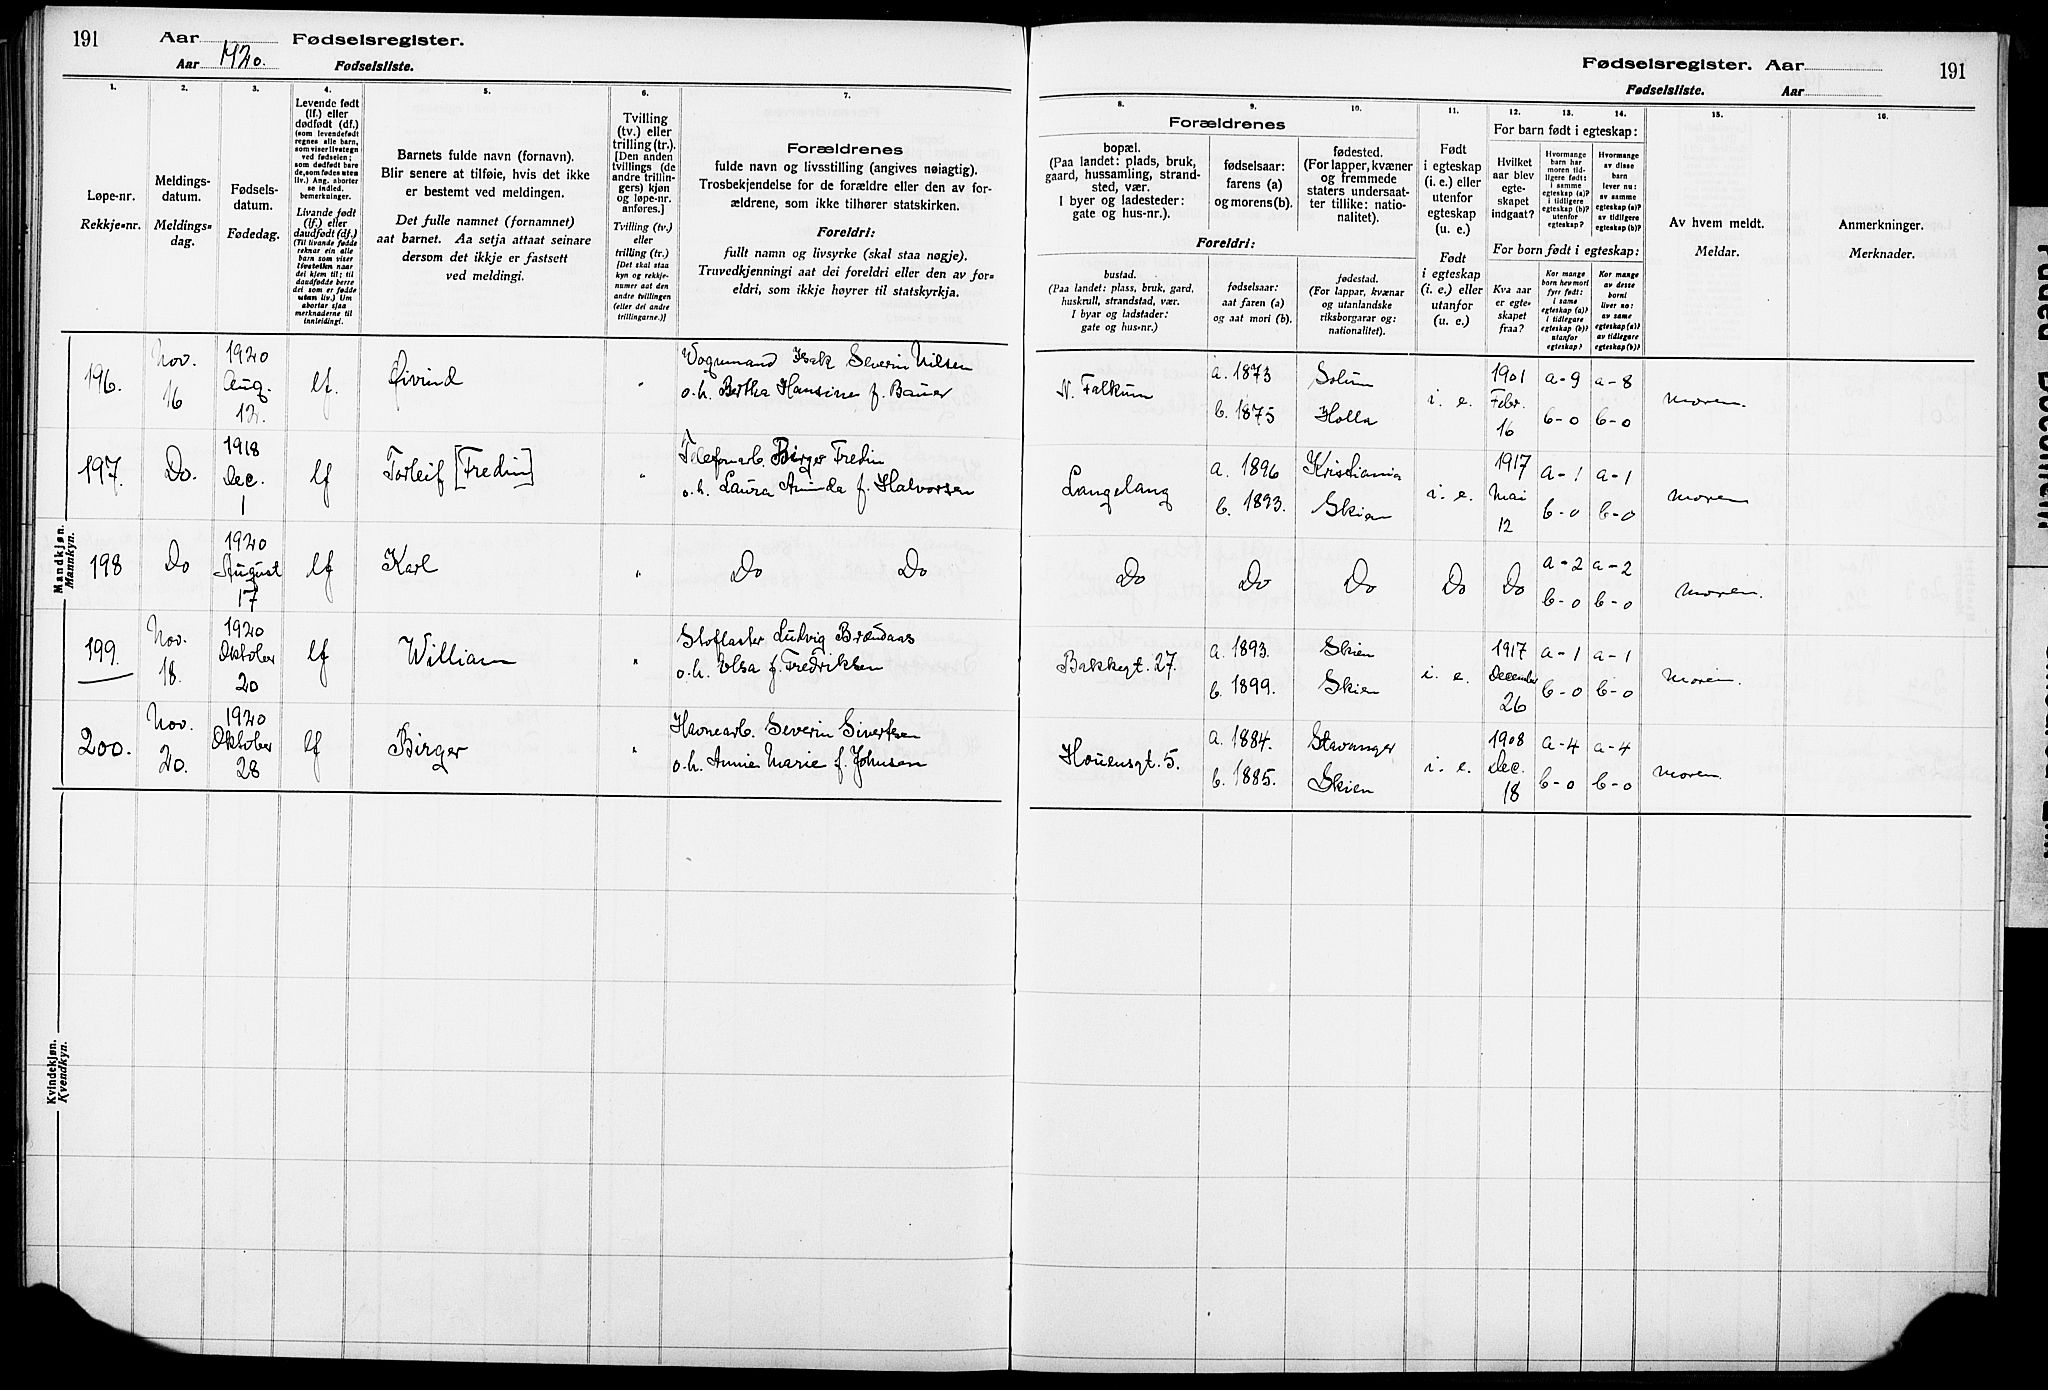 191
Aar 1920. Fødselsregister.
Aar Fødselsliste.
Fødselsregister. Aar
Fødselsliste. Aar
191
1. 2. 3. 4. 5. 6. 7.
Løpe-nr.
Rekkje-nr.
Meldings-
datum.
Meldings-
dag.
Fødsels-
datum.
Fødedag.
Levende født
(lf.) eller
dødfødt (df.)
(som levendefødt
regnes alle barn,
som viser livstegn
ved fødselen;
som dødfødt bare
de, som fødes uten
liv.) Ang. aborter
se indled.
bemerkninger.
Livande født
(lf.) eller
daudfødt (df.)
(Til livande fødde
reknar ein alle
barn som viser
livsteikn naar
dei kjem til; til
daudfødde berre
dei som er fødde
utan liv.) Um
abortar sjaa
merknaderne til
innleiding).
Barnets fulde navn (fornavn).
Blir senere at tilføie, hvis det ikke
er bestemt ved meldingen.
Det fulle namnet (fornamnet)
aat barnet. Aa setja attaat seinare
dersom det ikkje er fastsett
ved meldingi.
Tvilling
(tv.) eller
trilling (tr.).
[Den anden
tvillings (de
andre trillin-
gers) kjøn
og løpe-nr.
anføres.]
Tvilling (tv.)
eller
trilling (tr.)
[Det skal staa
kyn og rekkje-
numer aat den
andre tvillingen
(eller dei andre
trillingarne.)]
Forældrenes
fulde navn og livsstilling (angives nøiagtig).
Trosbekjendelse for de forældre eller den av for-
ældrene, som ikke tilhører statskirken.
Foreldri:
fullt namn og livsyrke (skal staa nøgje).
Truvedkjenningi aat dei foreldri eller den av for-
eldri, som ikkje høyrer til statskyrkja.
8. 9. 10. 11. 12. 13. 14. 15. 16.
Forældrenes
bopæl.
(Paa landet: plads, bruk,
gaard, hussamling, strand-
sted, vær.
I byer og ladesteder:
gate og hus-nr.).
fødselsaar:
farens (a)
og morens (b).
fødested.
(For lapper, kvæner
og fremmede
staters undersaat-
ter tillike: natio-
nalitet).
Foreldri:
bustad.
(Paa landet: plass, bruk, gard,
huskrull, strandstad, vær.
I byar og ladstader:
gate og hus-nr.)
fødselsaar:
aat faren (a)
og aat mori (b).
fødestad.
(For lappar, kvænar
og utanlandske
riksborgarar og :
nationalitet).
Født
i egteskap
(i. e.) eller
utenfor
egteskap
(u. e.).
Født
i egteskap
(i. e.) eller
utanfor
(u. e.)
For barn født i egteskap:
Hvilket
aar blev
egte-
skapet
indgaat?
Hvormange
barn har
moren tid-
ligere født:
i samme
egteskap (a)?
i tidligere
egteskap (b)?
utenfor
egteskap?
Hvormange
av disse
barn
lever nu:
av samme
egteskap (a)?
av tidligere
egteskap (b)?
For born født i egteskap:
Kva aar
er egte-
skapet
fraa?
Kor mange
born hev mori
fyrr født:
i same
egteskap (a)?
i tidlegare
egteskap (b)?
utanfor
egteskap?
Kor mange
av desse
borni
liver no:
av same
egteskap (a)?
av tidlegare
egteskap (b)?
Av hvem meldt.
Meldar.
Anmerkninger.
Merknader.
Mandkjøn.
Mannkyn.
196. Nov. 16 1920 Aug. 12. lf. Øivind "
Vognmand Isak Severin Nilsen
o.h. Bertha Hansine f. Bauer
N. Falkum a. 1873 b. 1875 Solum Holla i. e. 1901 Febr. 16 a-9 b-0 a-8 b-0 Moren.
197. Do. 1918 Dec. 1 lf Torleif [Fredin] "
Telefonarb. Birger Fredin
o.h. Laura Aminda f. Halvorsen
Langelang a. 1896 b. 1893. Kristiania Skien i. e. 1917 Mai 12 a-1 b-0 a-1 b-0 Moren
198 Do 1920 August 17 lf Karl " Do Do
Do Do Do Do Do a-2 b-0 a-2 b-0 Moren.
199. Nov. 18. 1920 Oktober 20 lf William "
Ludvig Brændaas
o.h. Elsa f. Fredriksen
Bakkegt. 27. a. 1893. b. 1899. Skien Skien i. e. 1917 December 26 a-1 b-0 a-1 b-0 Moren.
200. Nov. 20. 1920 Oktober 28 lf Birger "
Havnearb. Severin Sivertsen
o.h. Annie Marie f. Johnsen
Houensgt. 5. a. 1884. b. 1885. Stavanger Skien i. e. 1908 Dec. 18 a-4 b-0 a-4 b-0 Moren.
Kvindekjøn.
Kvendkyn.